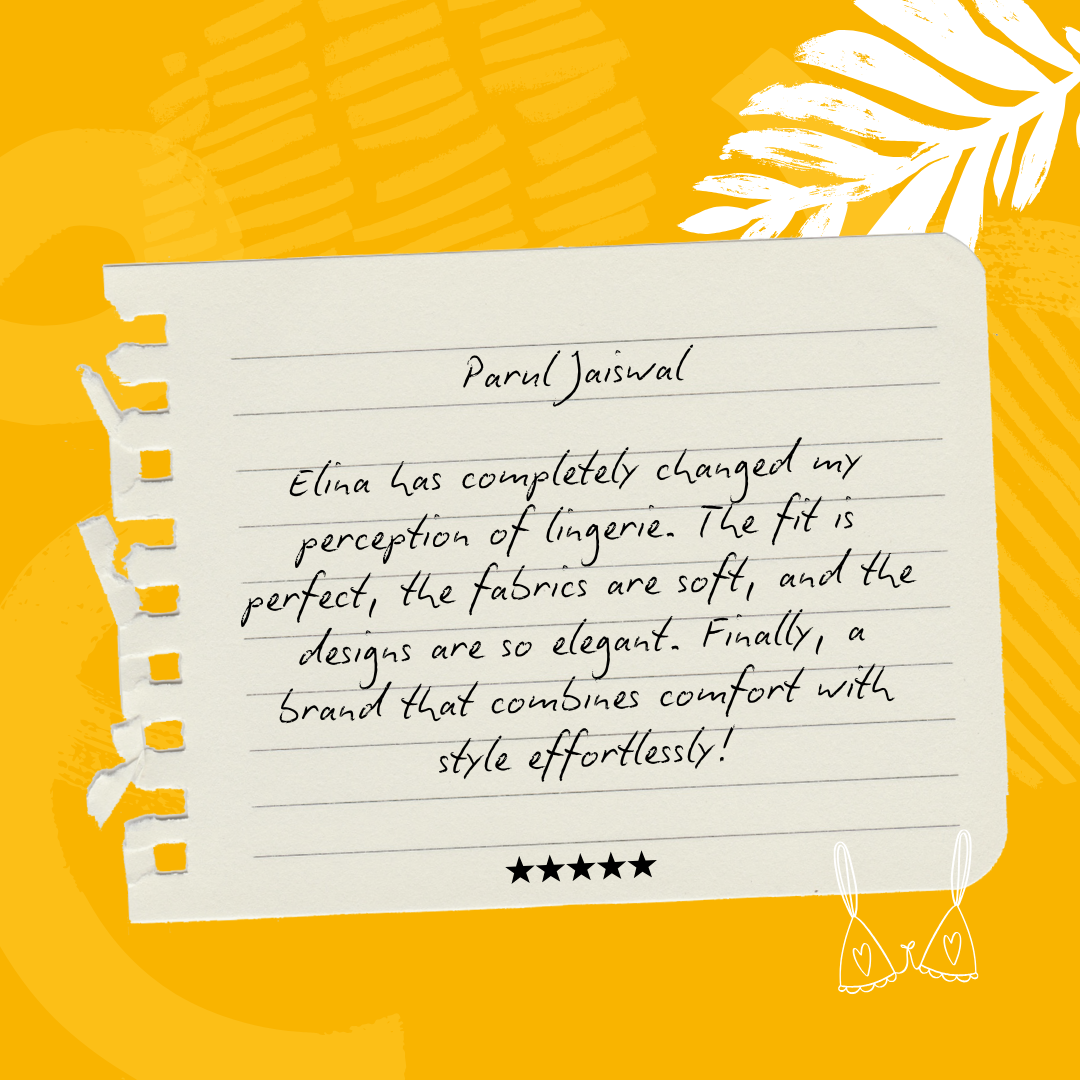 Parul Jaiswal
Elina has completely changed my
perception of lingerie. The fit is
perfect, the fabrics are soft, and the
designs are so elegant. Finally, a
brand that combines comfort with
style effortlessly!
★★★★★